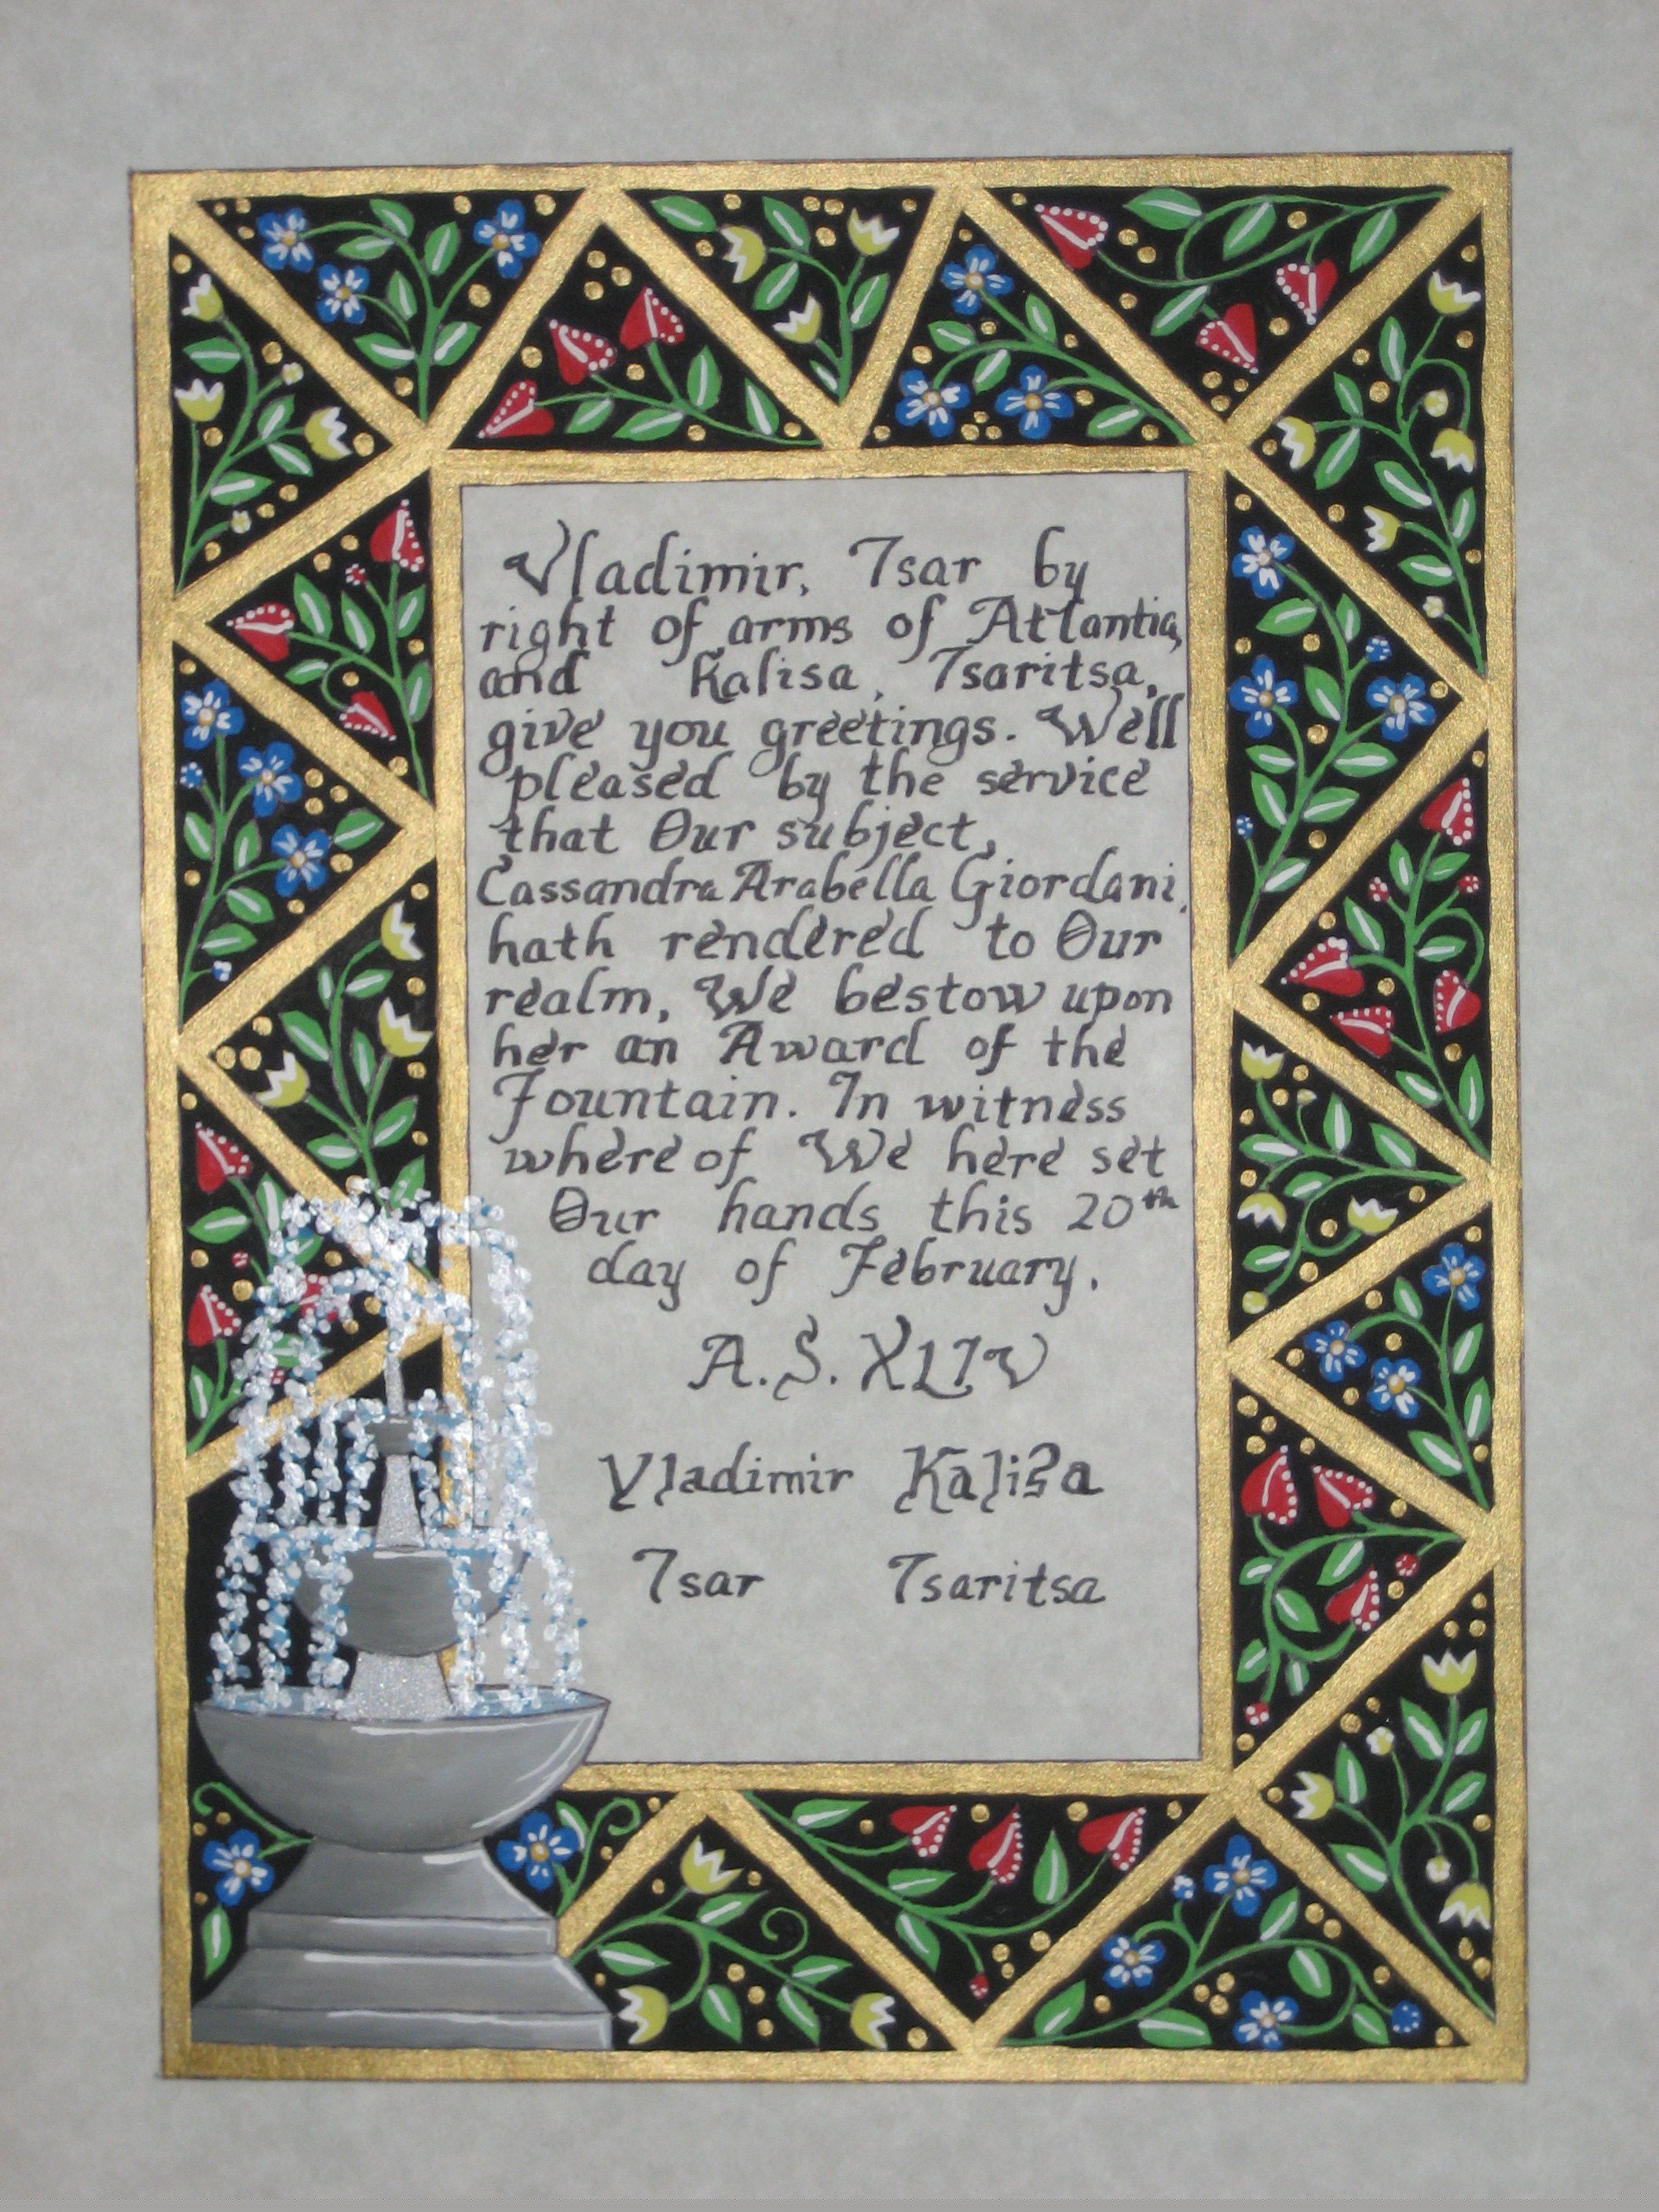 Vladimir, Tsar by
right of arms of Atlantia,
and Kalisa, Tsaritsa,
give you greetings. Well
pleased by the service
that Our subject,
Cassandra Arabella Giordani,
hath rendered to Our
realm, We bestow upon
her an Award of the
Fountain. In witness
where of We here set
Our hands this 20th
day of February.
A.S. XLIV
Vladimir Kalisa
Tsar Tsaritsa